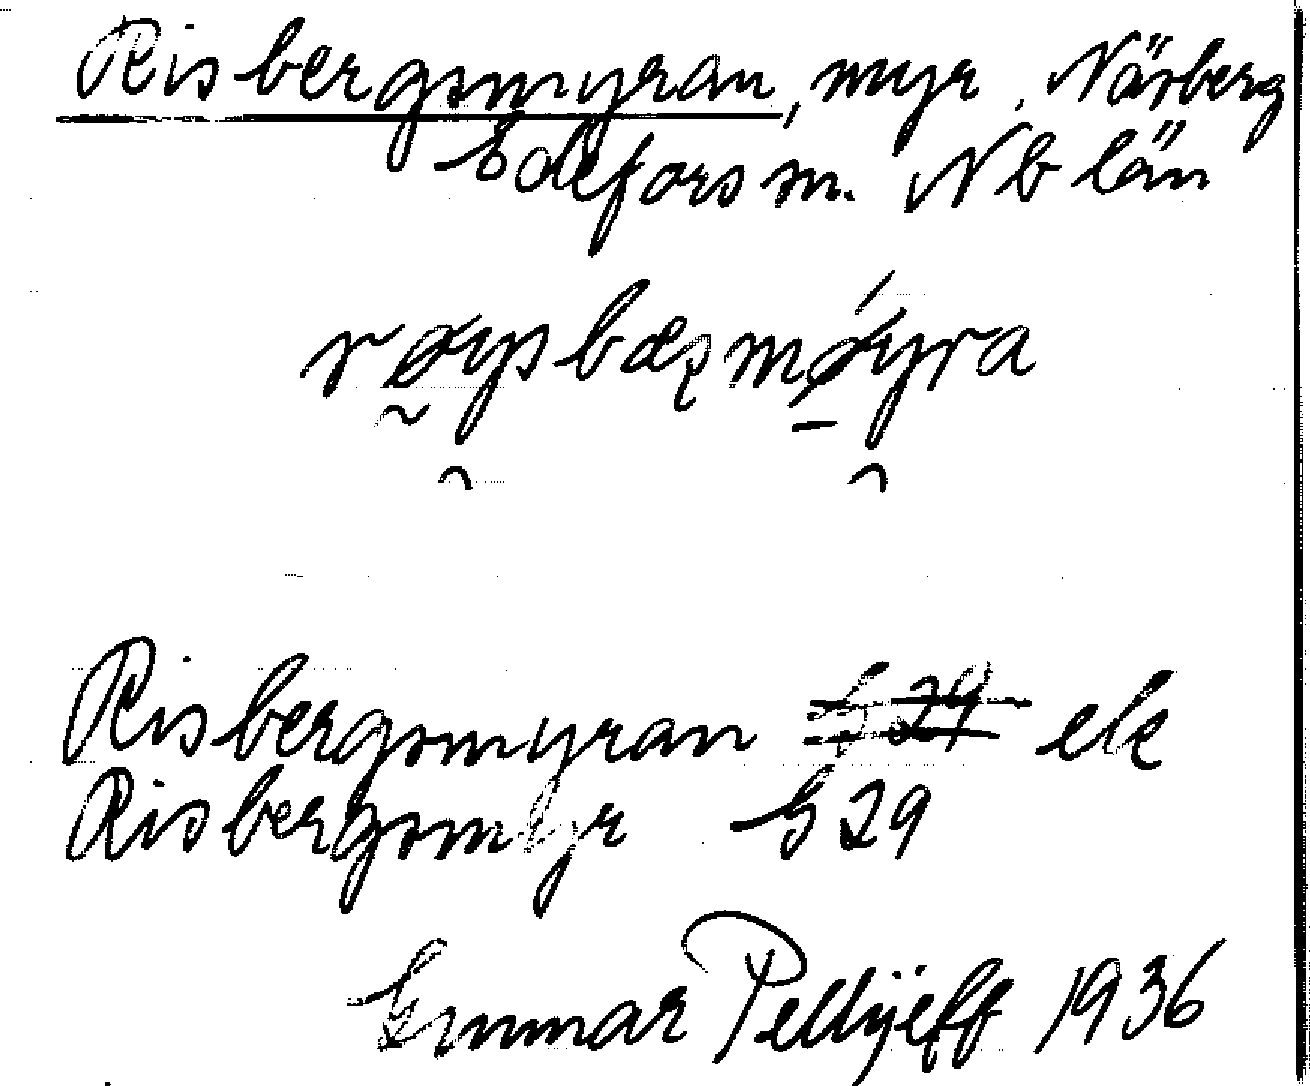 Risbergsmyran, myr, Närberg
Edefors sn. Nb län
røysbæʂmøyra
Risbergsmyran G 29 ek
Risbergsmyr G 29
Gunnar Pellijeff 1936